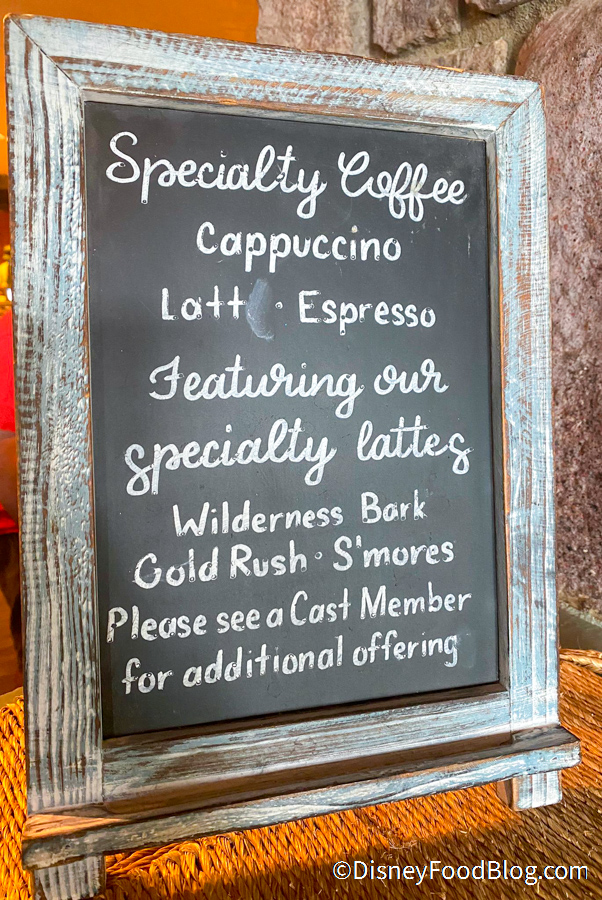 Specialty Coffee
Cappuccino
Latt · Espresso
Featuring our
specialty lattes
Wilderness Bark
Gold Rush · S'mores
Please see a Cast Member
for additional offering
©DisneyFoodBlog.com